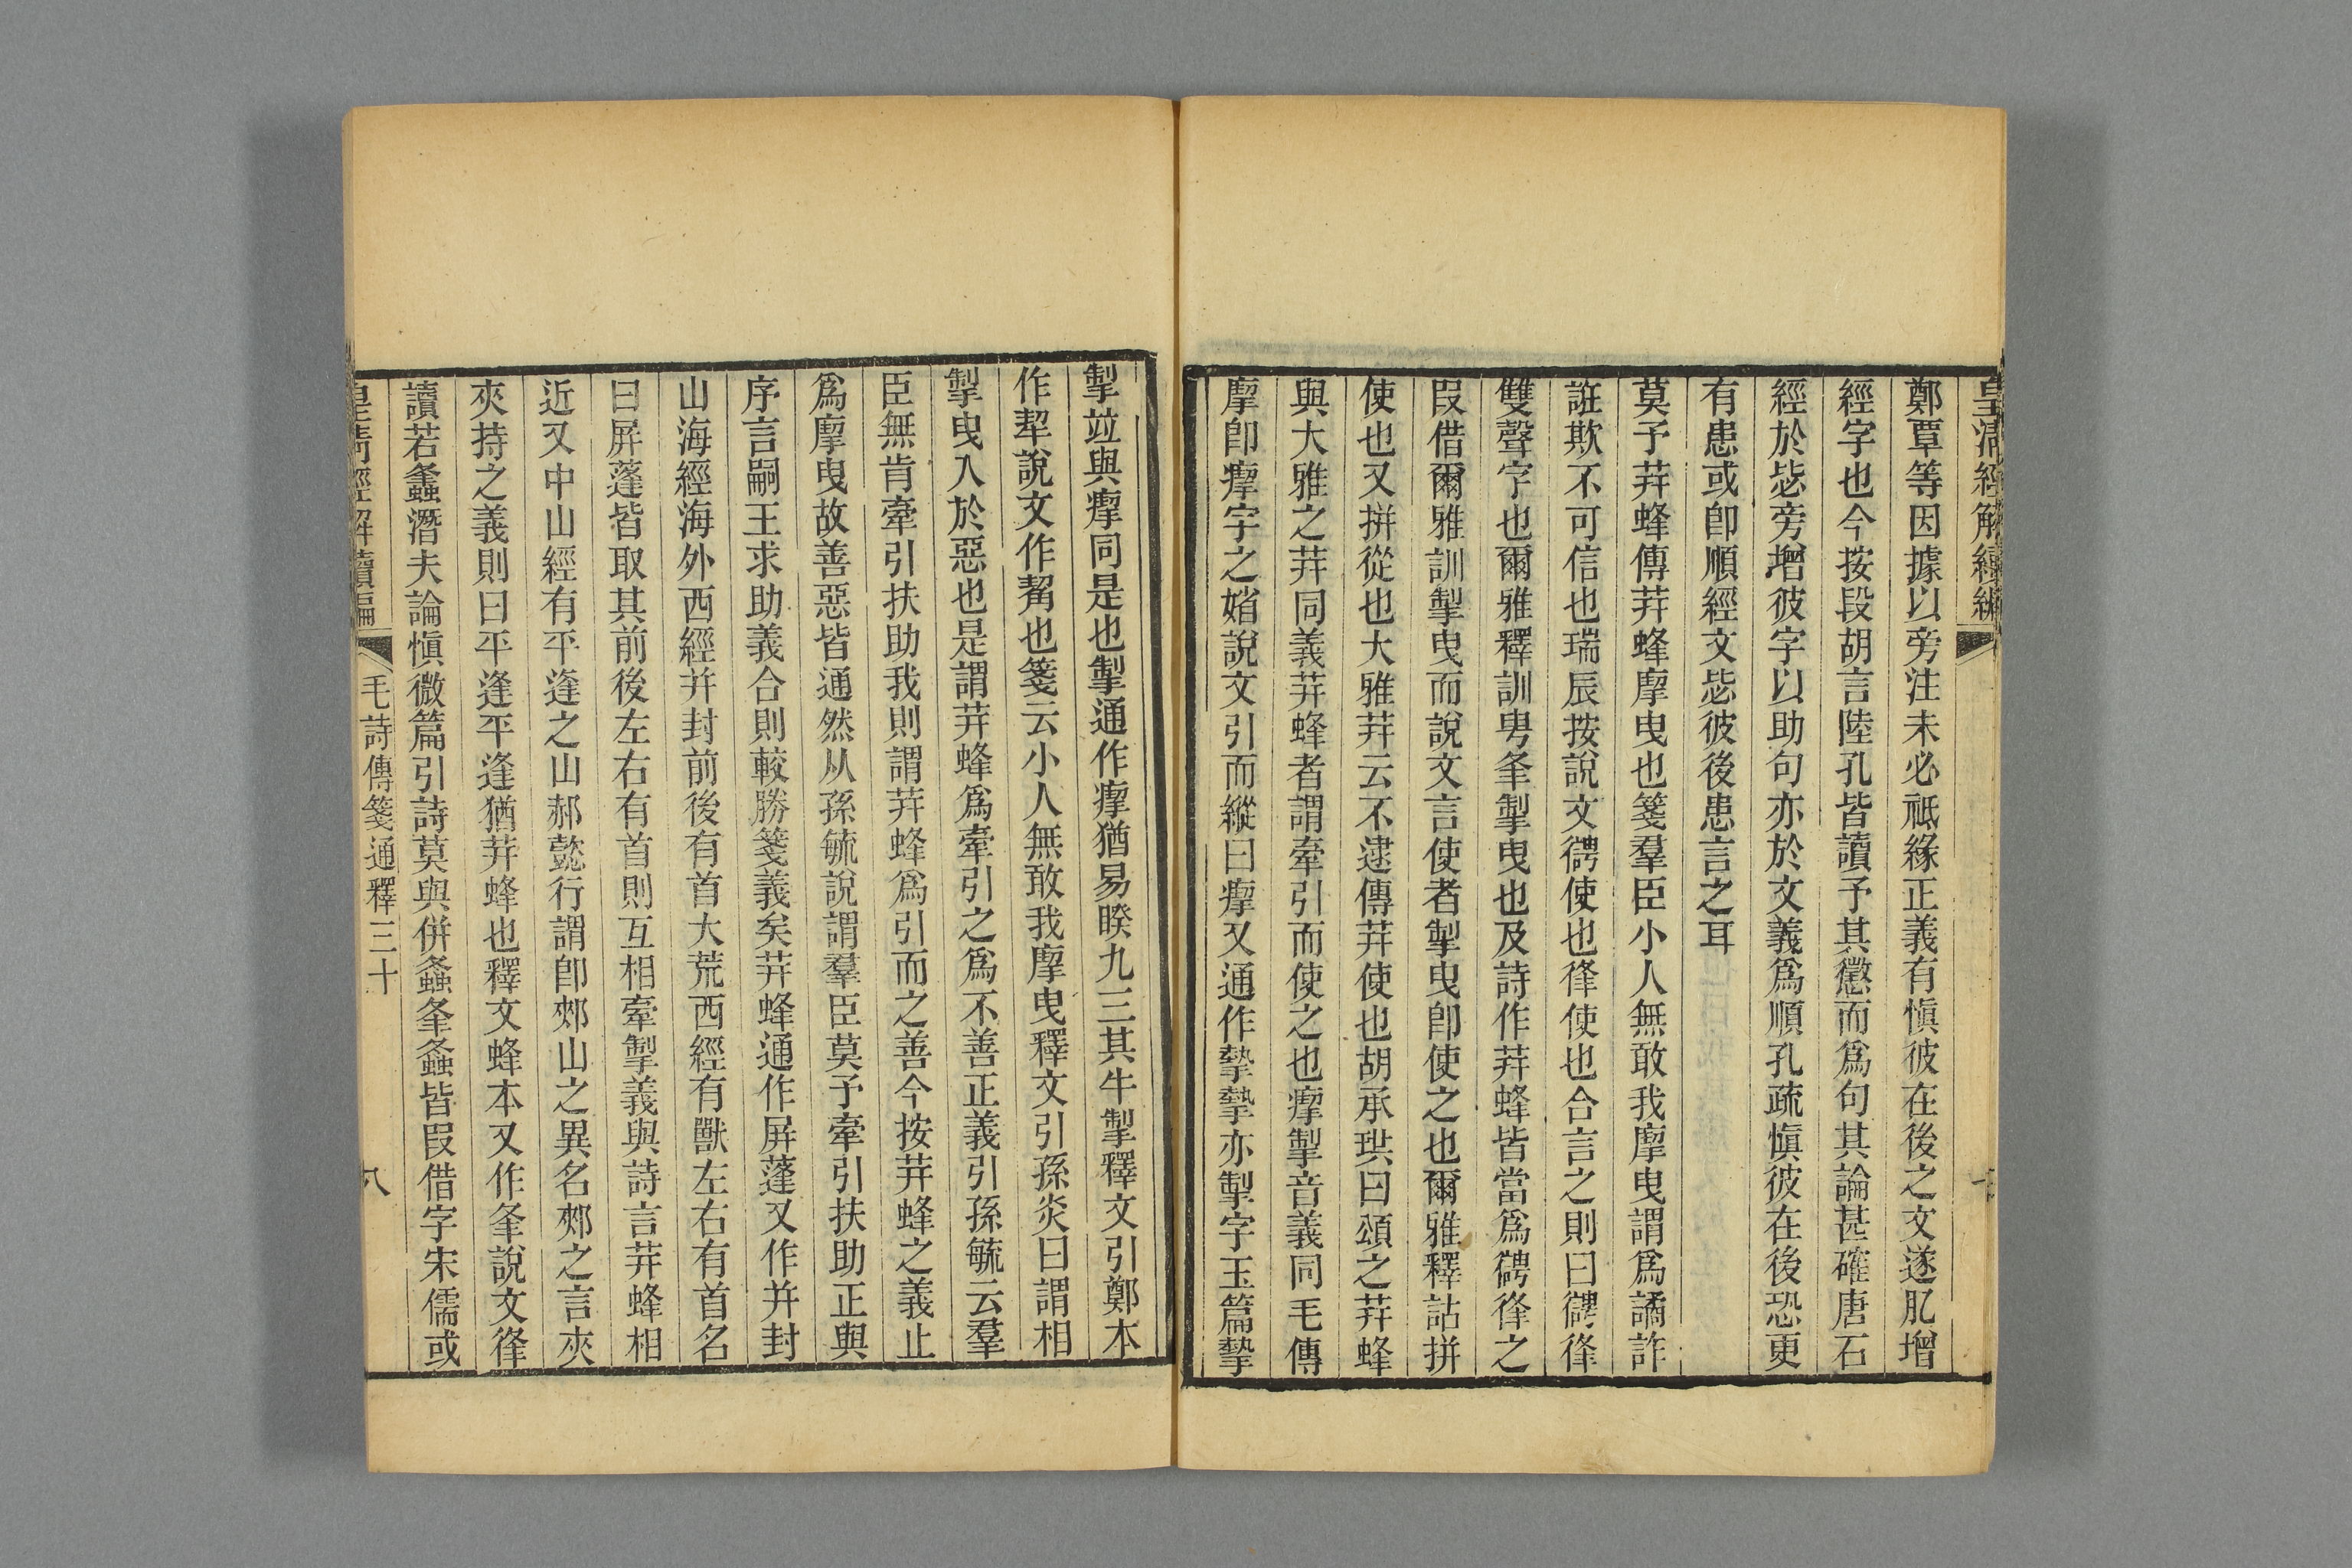 皇清經解續編
鄭覃等因據以旁注未必祗緣正義有愼彼在後之文遂肊增
經字也今按段胡言陸孔皆讀予其懲而爲句其論甚確唐石
經於毖旁增彼字以助句亦於文義爲順孔疏愼彼在後恐更
有患或卽順經文毖彼後患言之耳
莫予荓蜂傳荓蜂摩曳也箋羣臣小人無敢我摩曳謂爲譎詐
誑欺不可信也瑞辰按說文㣔使也㣔使也合言之則曰
雙聲字也爾雅釋訓甹夆掣曳也及詩作荓蜂皆當爲之
叚借爾雅訓掣曳而說文言使者掣曳卽使之也爾雅釋詁拼
使也又拼從也大雅荓云不逮傳荓使也胡承珙曰頌之荓蜂
與大雅之荓同義荓蜂者謂牽引而使之也瘳掣音義同毛傳
摩卽瘳字之媘說文引而縱曰瘳又通作摯摯亦掣字玉篇摯
掣竝與瘳同是也掣通作瘳猶易暌九三其牛掣釋文引鄭本
作犎說文作觢也箋云小人無敢我摩曳釋文引孫炎曰謂相
掣曳入於惡也是謂荓蜂爲牽引之爲不善正義引孫毓云羣
臣無肯牽引扶助我則謂荓蜂爲引而之善今按荓蜂之義止
爲摩曳故善惡皆通然从孫毓說謂羣臣莫予牽引扶助正與
序言嗣王求助義合則較勝箋義矣荓蜂通作屛蓬又作并封
山海經海外西經并封前後有首大荒西經有獸左右有首名
曰屛蓬皆取其前後左右有首則互相牽掣義與詩言荓蜂相
近又中山經有平逢之山郝懿行謂卽郟山之異名郟之言夾
夾持之義則曰平逢平逢猶荓蜂也釋文蜂本又作夆說文㣔
讀若螽潛夫論愼微篇引詩莫與併螽夆螽皆叚借字宋儒或
皇淸經解續編
毛詩傳箋通釋三十
八